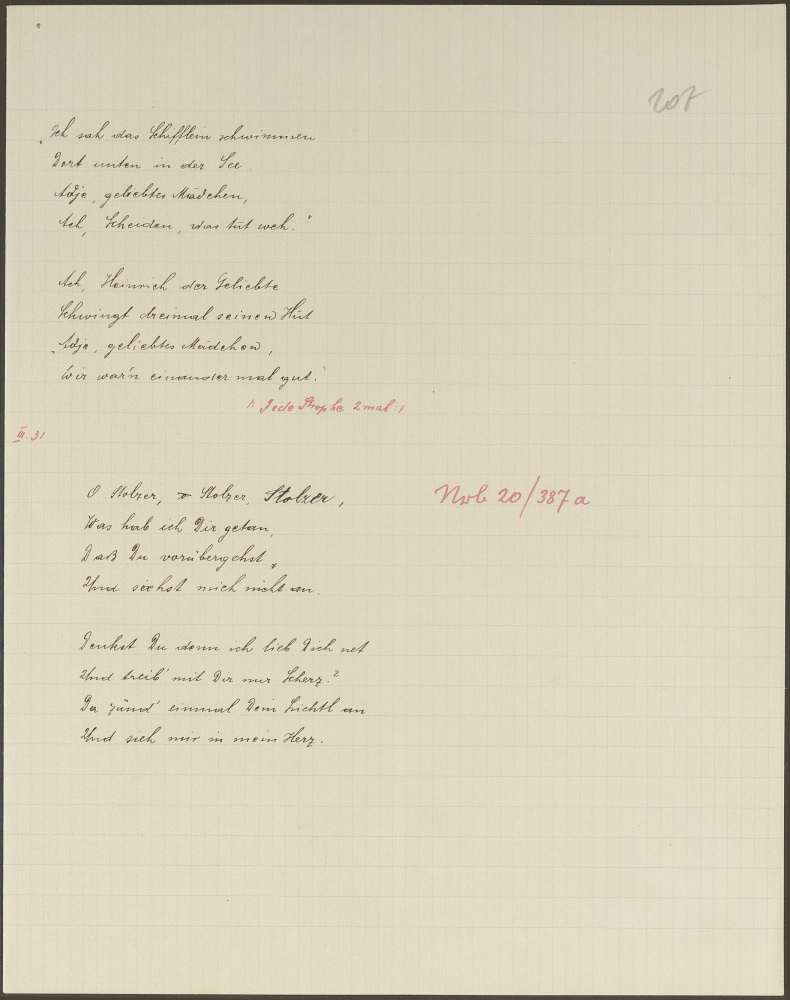 207
„Ich sah das Schifflein schwimmen
Dort unten in der See.
Adje, geliebtes Mädchen,
Ach, Scheiden, das tut weh.“
Ach, Heinrich der Geliebte
Schwingt dreimal seinen Hut
„Adje, geliebtes Mädchen,
Wir war'n einander mal gut.“
|: Jede Strophe 2 mal :|
III. 31
O Stolzer, o Stolzer, Stolzer,
Nol 20/387 a
Was hab ich Dir getan,
Daß Du vorübergehst,
Und siehst mich nicht an.
Denkst Du denn ich lieb Dich net
Und treib' mit Dir nur Scherz?
Da zünd' einmal Dein Lichtl an
Und sieh mir in mein Herz.